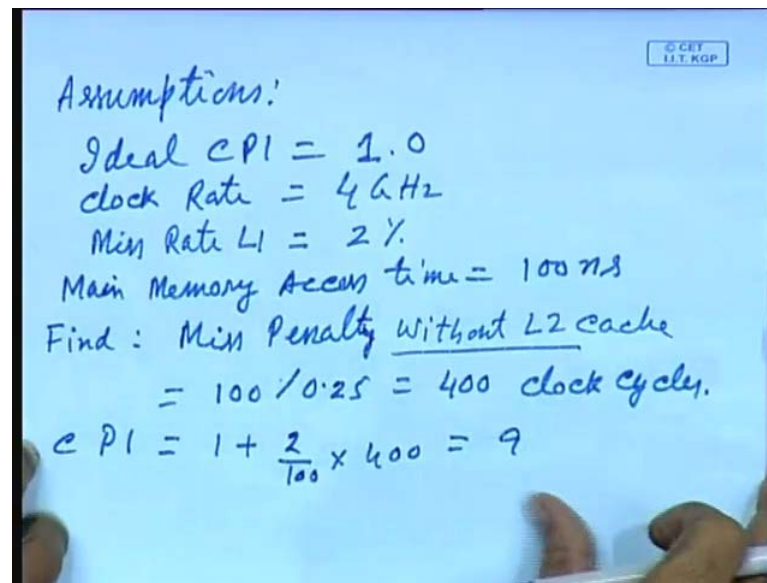 © CET
I.I.T. KGP
Assumptions:
Ideal CPI = 1.0
clock Rate = 4 GHz
Miss Rate L1 = 2 %
Main Memory Access time = 100 ns
Find : Miss Penalty without L2 cache
= 100 / 0.25 = 400 clock cycles.
CPI = 1 + 2/100 × 400 = 9